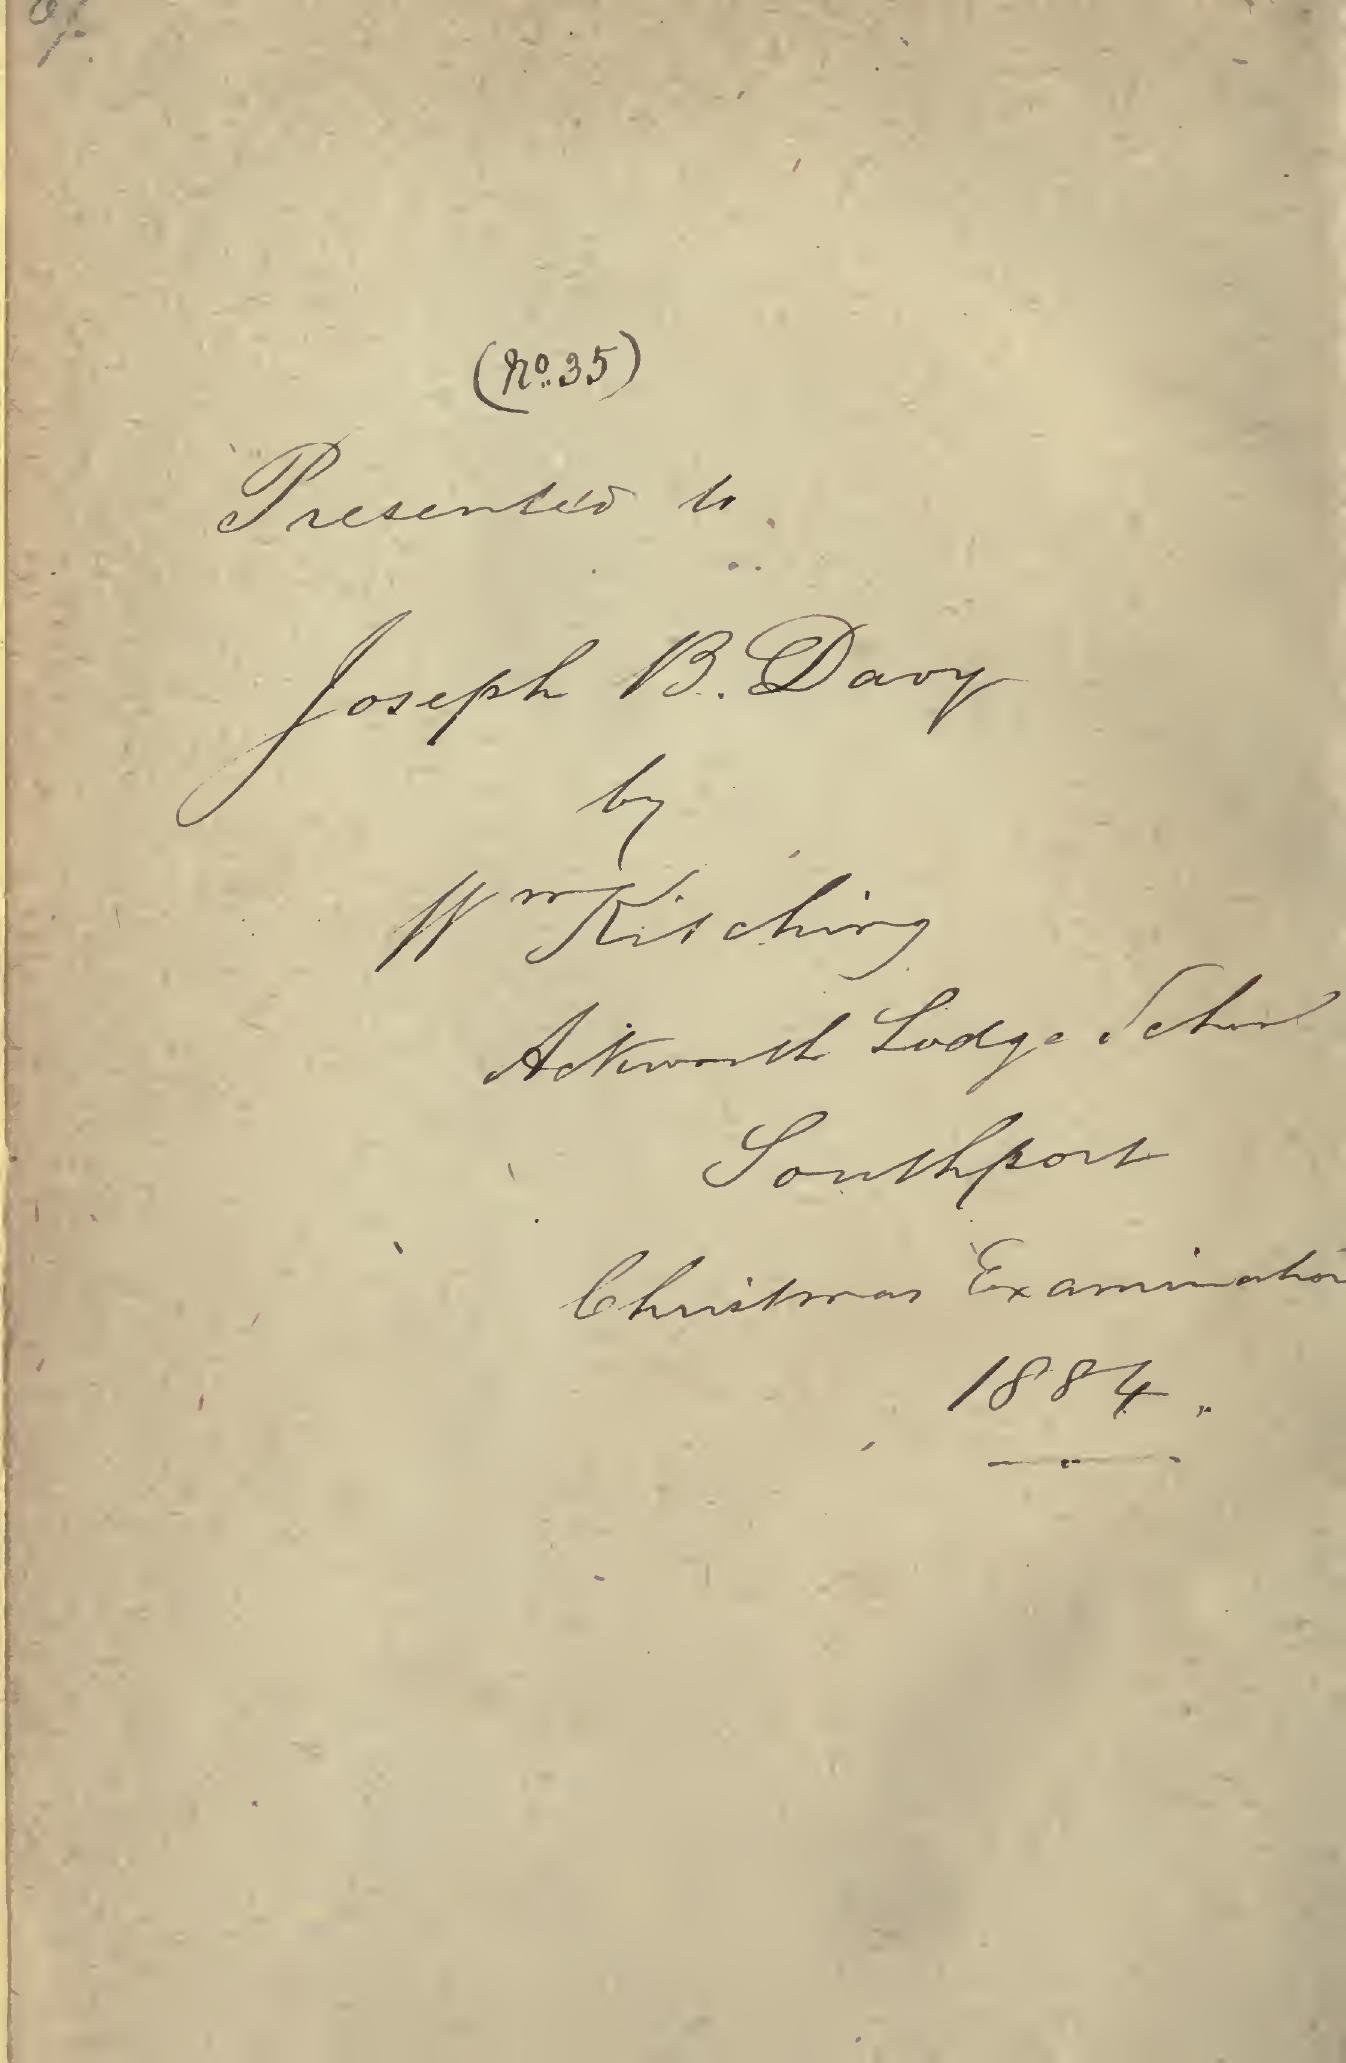 (No. 35)
Presented to
Joseph B. Davy
by
Wm Kitching
Ackworth Lodge School
Southport
Christmas Examination
1884.